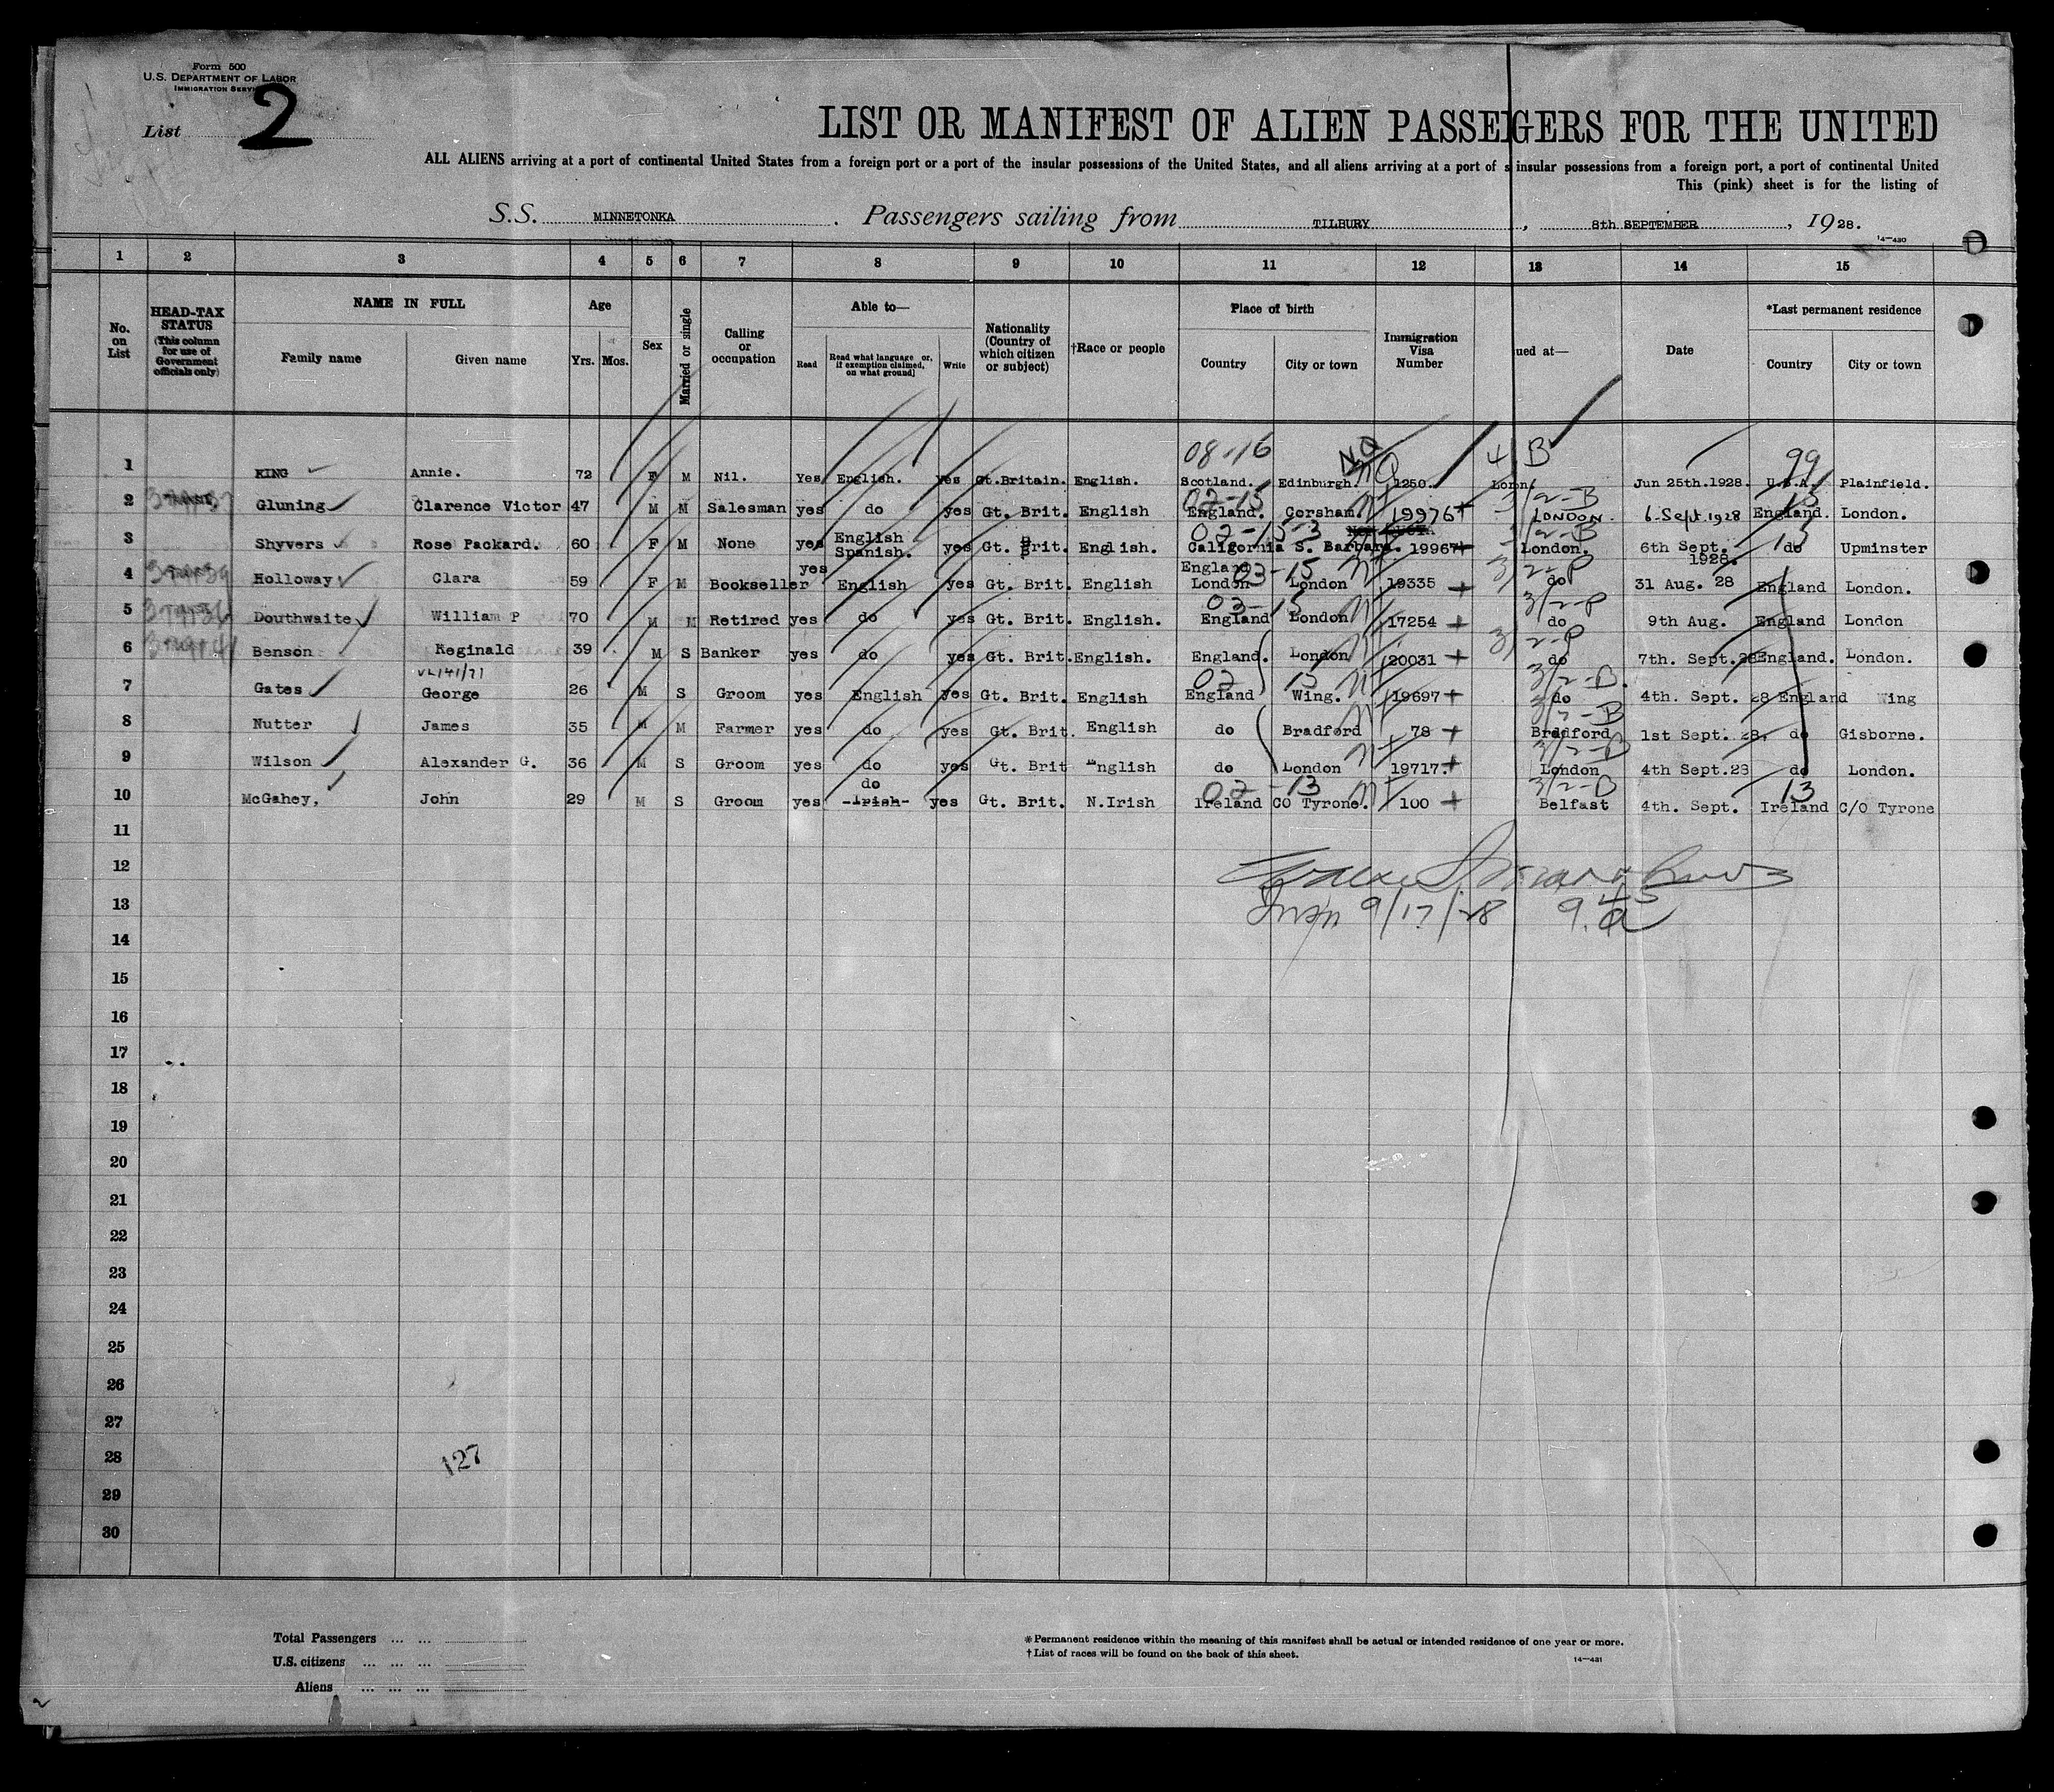 Form 500
U.S. DEPARTMENT OF LABOR
IMMIGRATION SERVI
List 2
LIST OR MANIFEST OF ALIEN PASSENGERS FOR THE UNITED
ALL ALIENS arriving at a port of continental United States from a foreign port or a port of the insular possessions of the United States, and all aliens arriving at a port of s insular possessions from a foreign port, a port of continental United
This (pink) sheet is for the listing of
S.S. MINNETONKA. Passengers sailing from TILBURY, 8th SEPTEMBER, 1928.
14—430
1 2 3 4 5 6 7 8 9 10 11 12 13 14 15
No. on List
HEAD-TAX STATUS (This column for use of Government officials only)
NAME IN FULL
Family name Given name
Age
Yrs. Mos.
Sex
Married or single
Calling or occupation
Able to—
Read Read what language or, if exemption claimed, on what ground] Write
Nationality (Country of which citizen or subject)
†Race or people
Place of birth
Country City or town
Immigration Visa Number
ued at—
Date
*Last permanent residence
Country City or town
08-16 NQ 4 B 99
1 KING Annie. 72 F M Nil. Yes English. yes Gt.Britain. English. Scotland. Edinburgh. NQ 1250. Lonn. Jun 25th.1928. U.S.A. Plainfield.
02-15 3/2-B 13
2 Gluning Clarence Victor 47 M M Salesman yes do yes Gt. Brit. English England. Corsham 19976 LONDON. 6. Sept 1928 England. London.
02-15-3 3/2-B 13
3 Shyvers Rose Packard. 60 F M None yes English Spanish. yes Gt. Brit. English. California S. Barbara. 19967 London. 6th Sept. 1928. do Upminster
03-15 3/2-P
4 Holloway Clara 59 F M Bookseller yes English yes Gt. Brit. English England London London 19335 do 31 Aug. 28 England London.
03-15 3/2-P
5 Douthwaite William P 70 M M Retired yes do yes Gt. Brit. English. England London 17254 do 9th Aug. England London
3/2-P
6 Benson Reginald 39 M S Banker yes do yes Gt. Brit. English. England. London 20031 do 7th. Sept.28 England. London.
02 13 3/2-B.
7 Gates George 26 M S Groom yes English yes Gt. Brit. English England Wing. 19697 do 4th. Sept. 28 England Wing
3/2-B
8 Nutter James 35 M M Farmer yes do yes Gt. Brit. English do Bradford 78 Bradford 1st Sept. 28. do Gisborne.
3/2-B
9 Wilson Alexander G. 36 M S Groom yes do yes Gt. Brit English do London 19717. London 4th Sept.28 do London.
02-13 3/2-B 13
10 McGahey, John 29 M S Groom yes do -Irish- yes Gt. Brit. N.Irish Ireland CO Tyrone. 100 Belfast 4th. Sept. Ireland C/O Tyrone
11
12
13 9/17/28 9.45 a
14
15
16
17
18
19
20
21
22
23
24
25
26
27
28 127
29
30
Total Passengers ... ...
U.S. citizens ... ... ...
Aliens ... ... ...
* Permanent residence within the meaning of this manifest shall be actual or intended residence of one year or more.
† List of races will be found on the back of this sheet.
14—431